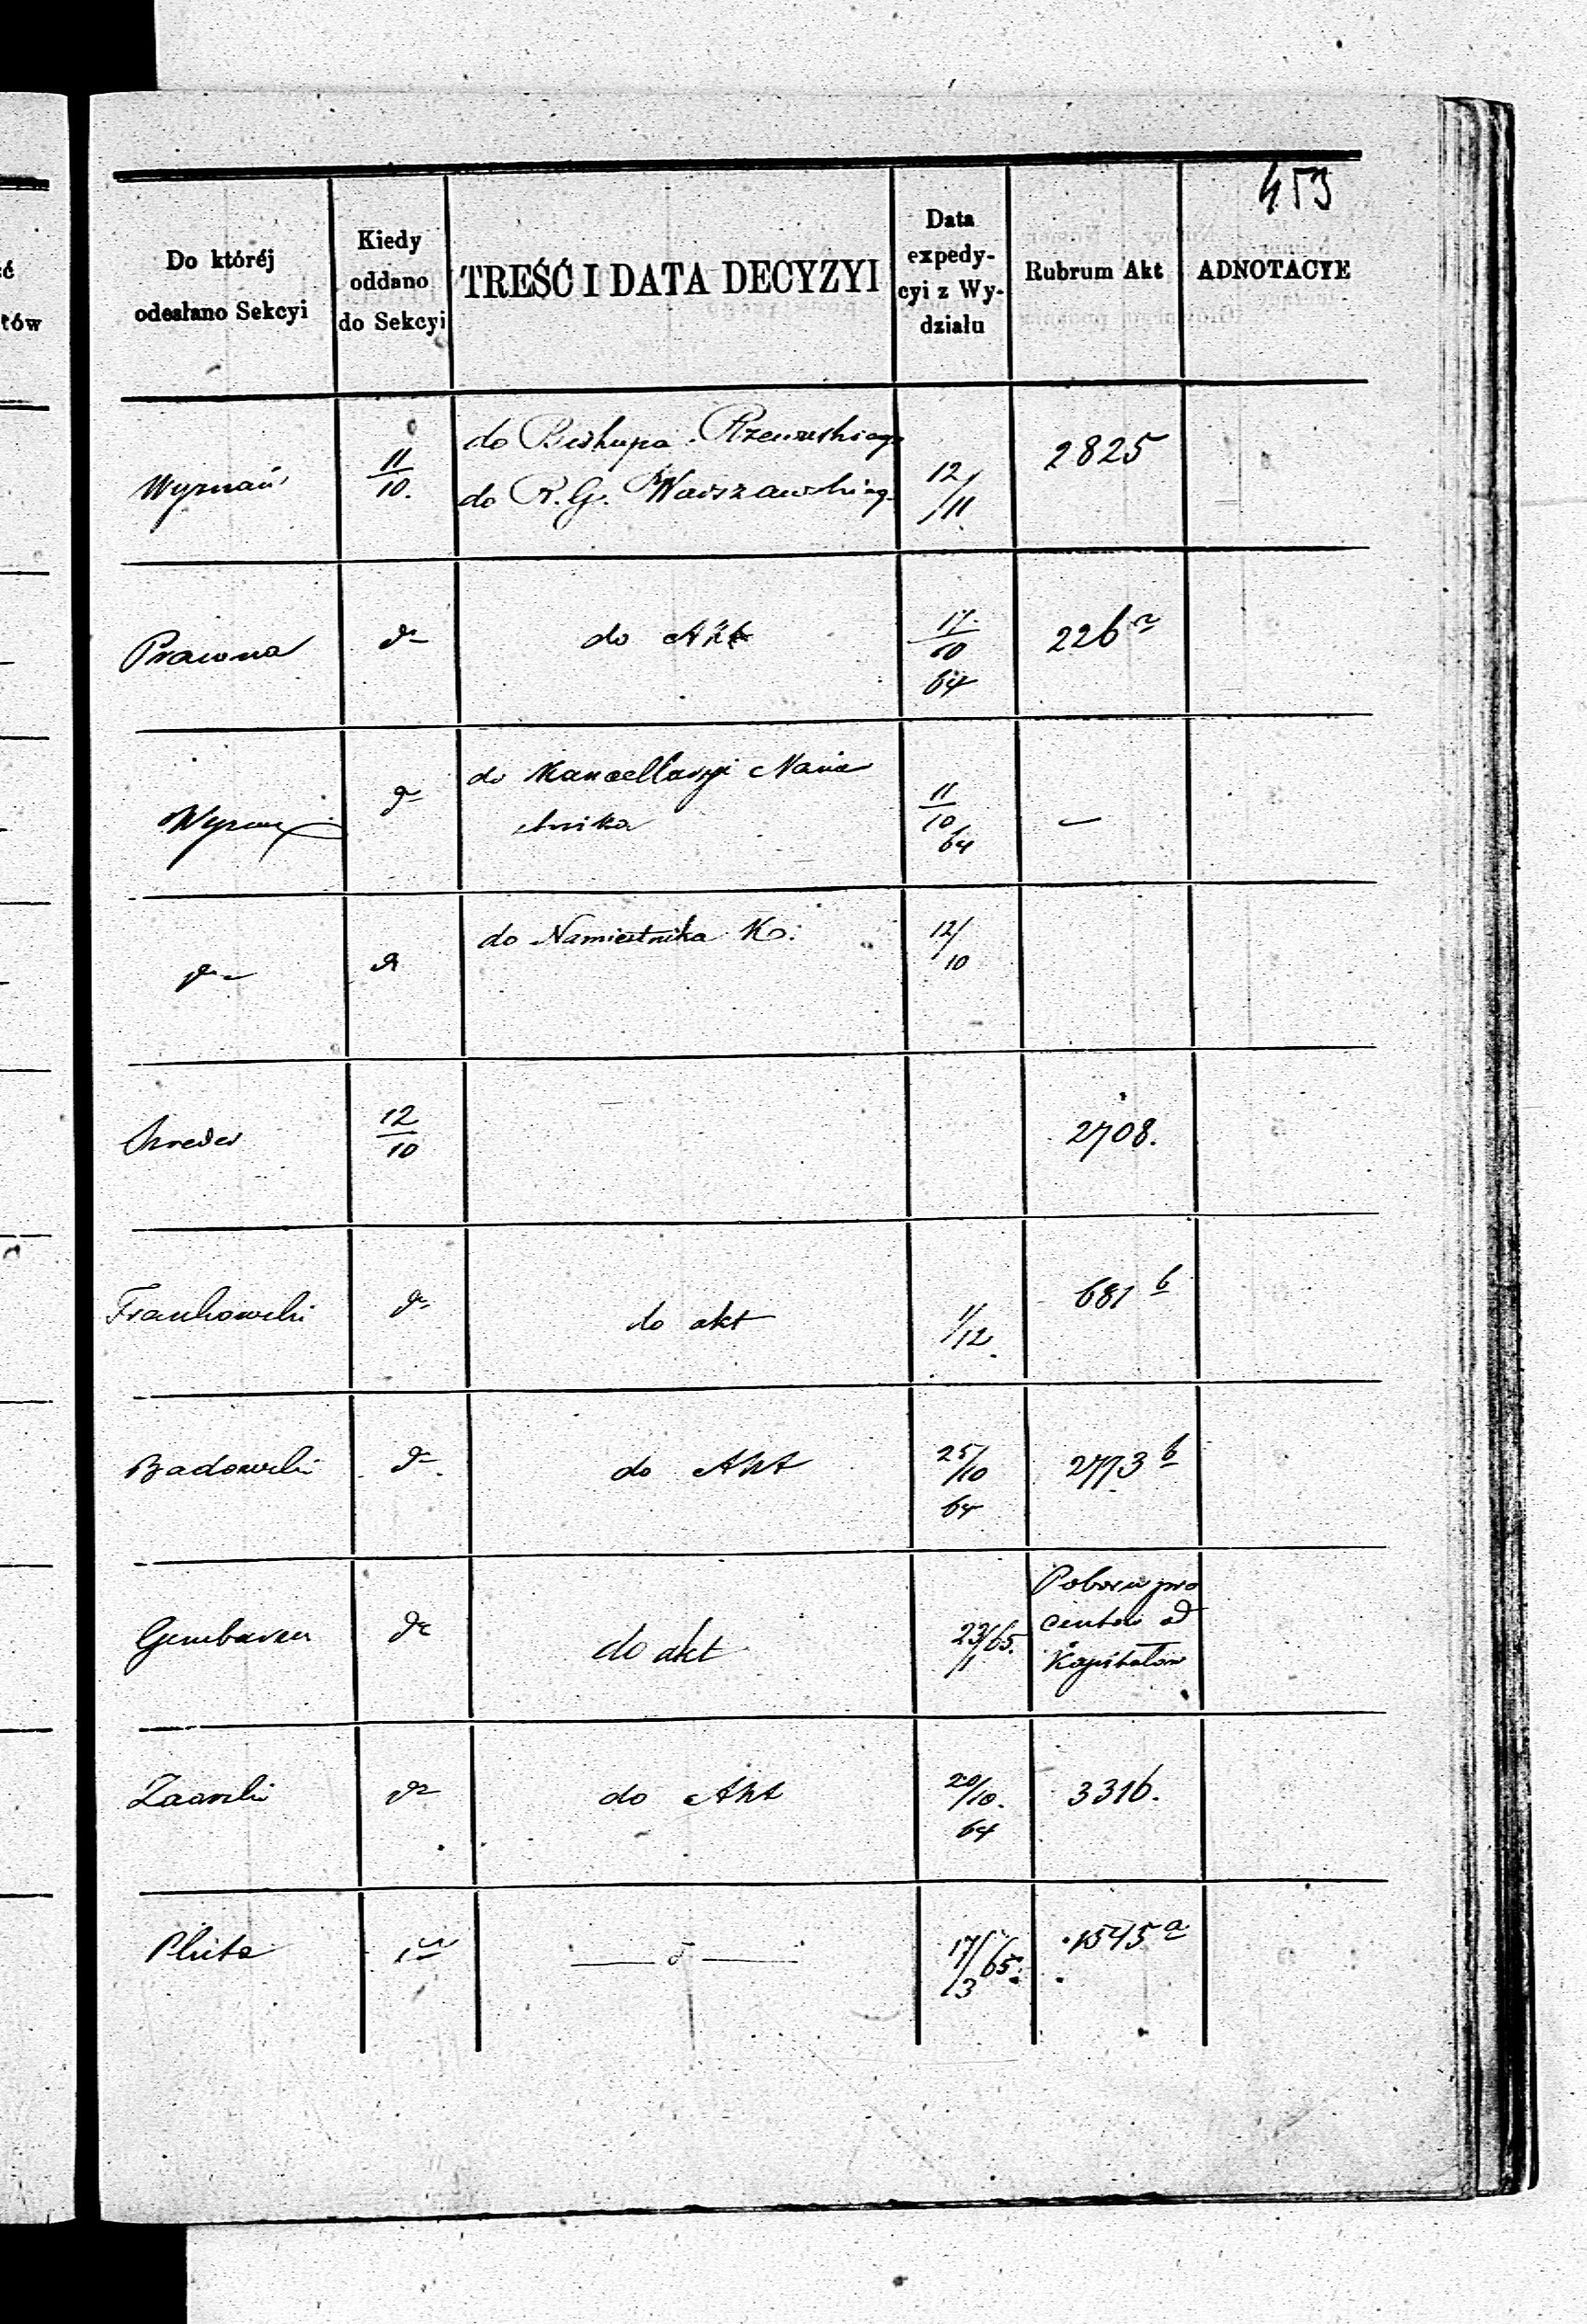 453
ć
tów
Do któréj
odesłano Sekcyi
Kiedy
oddano
do Sekcyi
TREŚĆ I DATA DECYZYI
Data
expedy-
cyi z Wy-
działu
Rubrum Akt
ADNOTACYE
Wyznań
11
10.
do Biskupa Rzewuskiego
do R. G. Warszawskieg.
12/
/11
2825
Prawna
do
do Akt
17.
10
64
226 a
do
do Kancellaryi Namie
stnika
11
10
64
—
do
do
do Namiestnika K.
12/
10
12
10
2708.
Frankowski
do
do akt
1/12.
681 b
Badowski
do
do Akt
25/10
64
2773 b
do
do akt
23/1 65.
Poboru pro
centów od
Kapitałów
do
do Akt
20/10.
64
3316.
Pluta
17/3 65.
1545 a